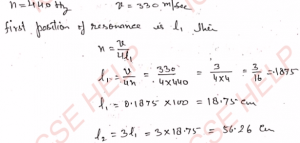 n = 440 Hz v = 330 m/sec
first position of resonance is l₁ then
n = v/4l₁
l₁ = v/4n = 330/4×440 = 3/4×4 = 3/16 = .1875
l₁ = 0.1875 × 100 = 18.75 cm
l₂ = 3l₁ = 3 × 18.75 = 56.26 cm